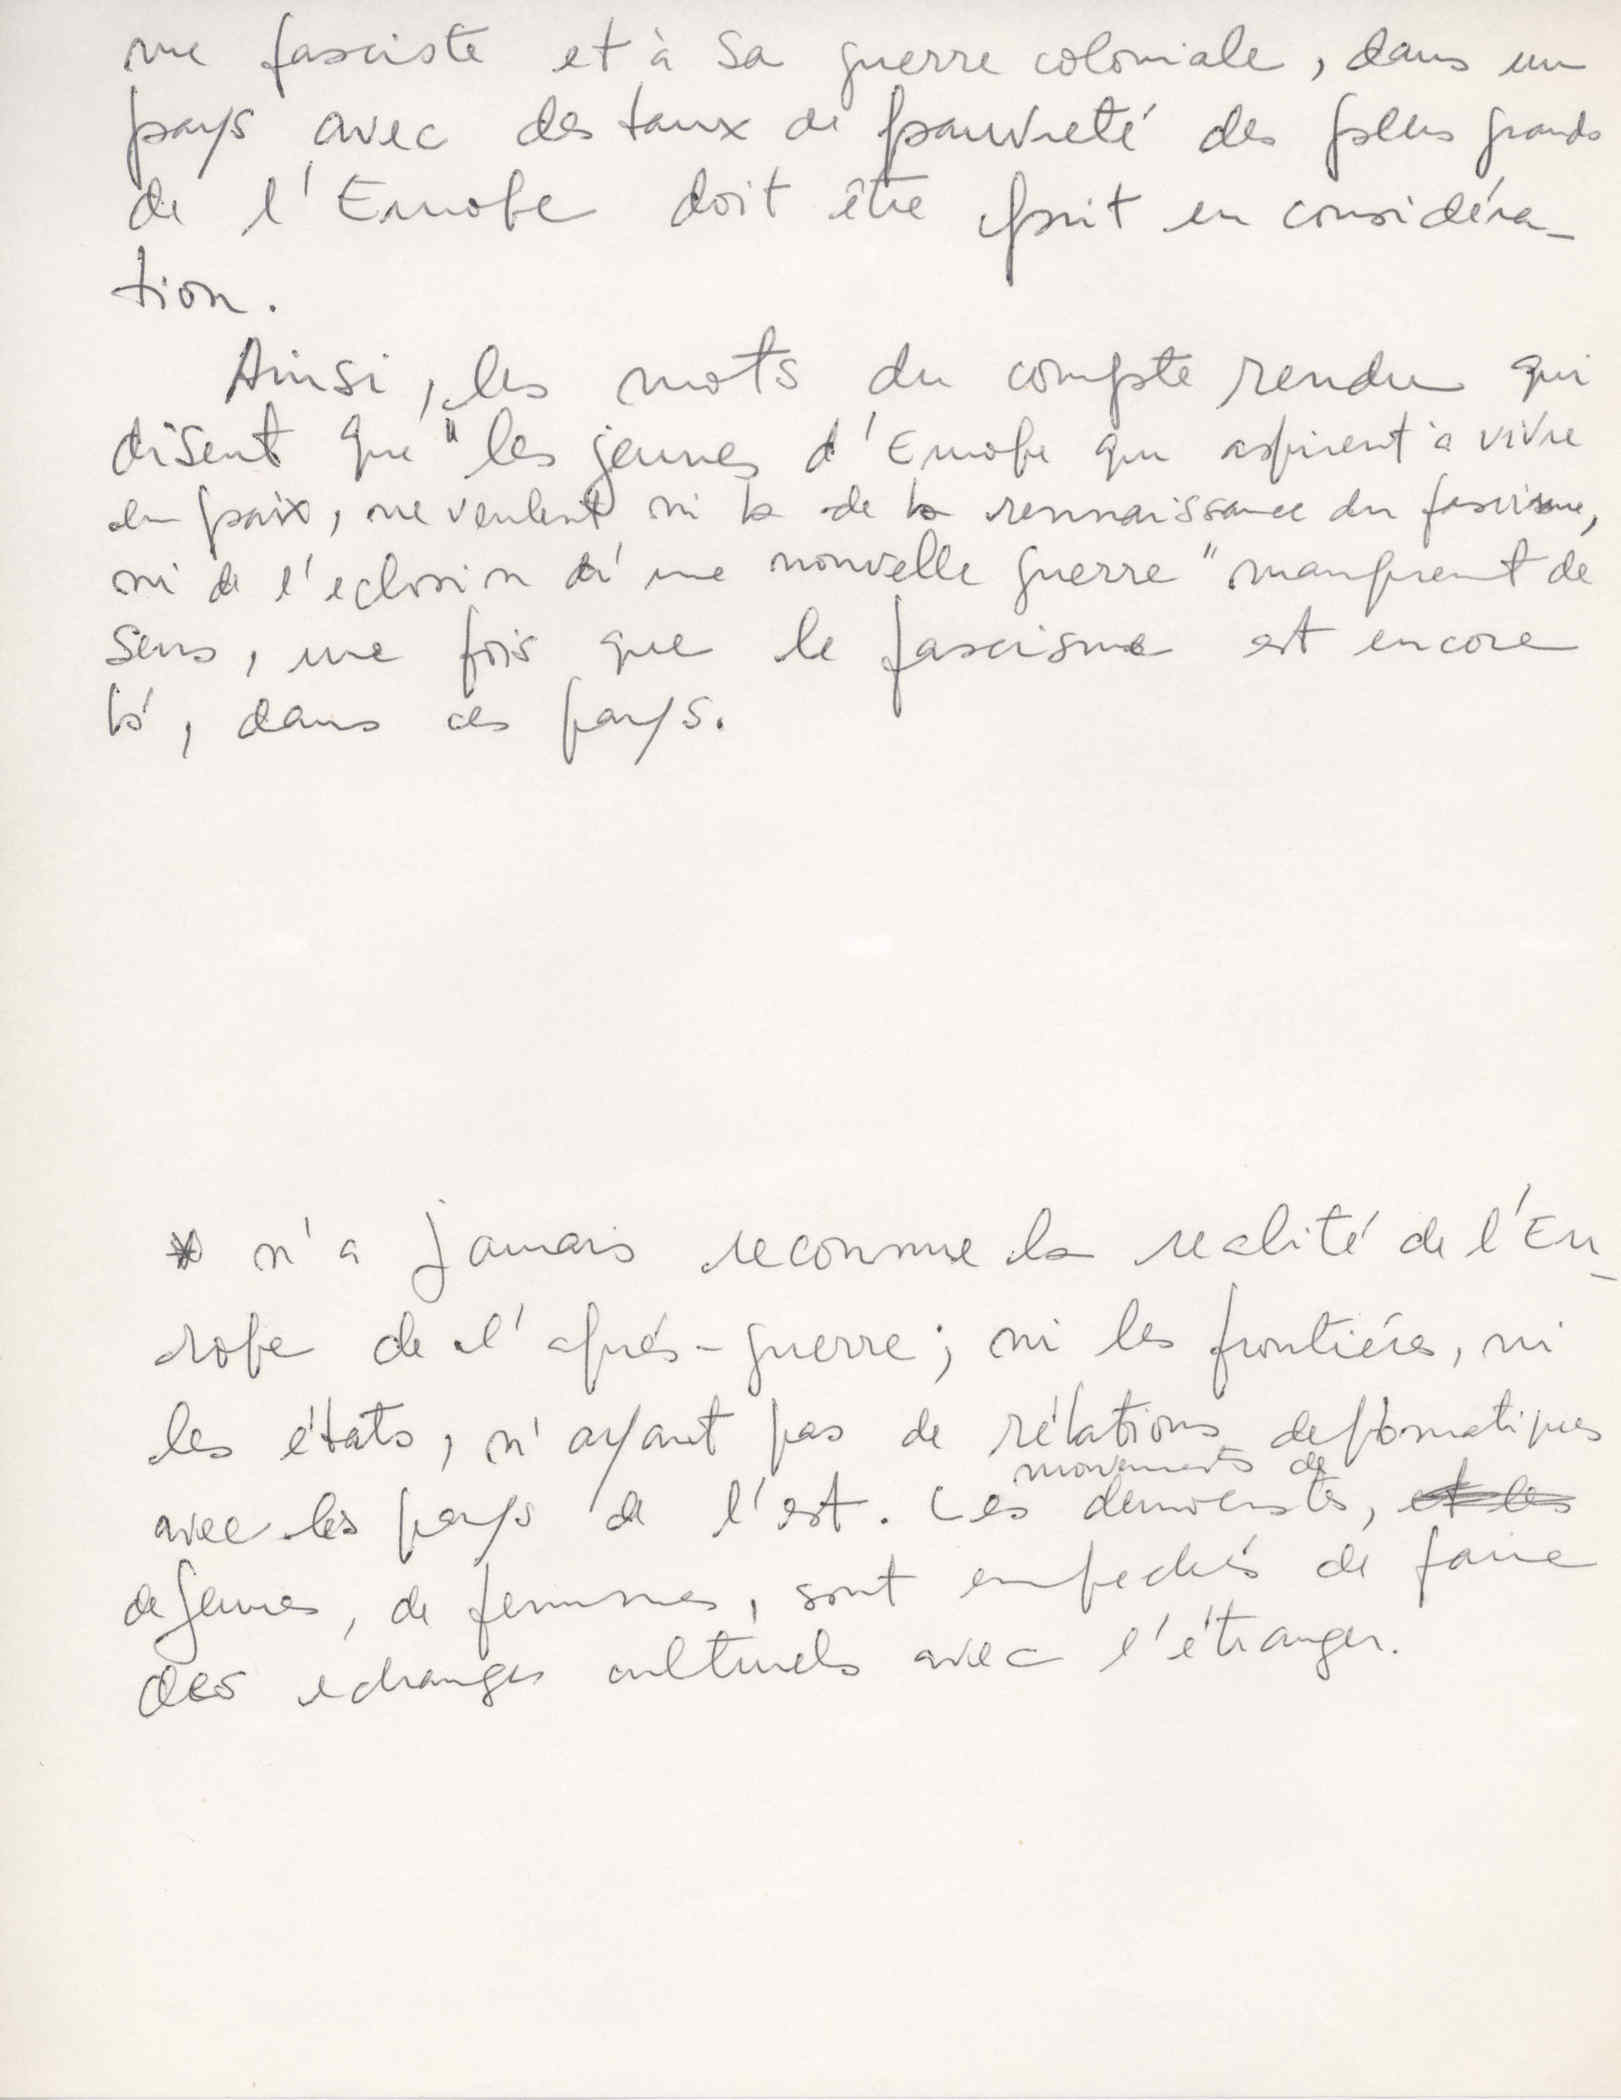 me fasciste et à sa guerre coloniale, dans un
pays avec des taux de pauvreté des plus grands
de l'Europe doit être prit en considéra-
tion.
Ainsi, les mots du compte rendu qui
disent que "les jeunes d'Europe qui aspirent à vivre
en paix, ne veulent ni la de la rennaissance du fascisme,
ni de l'eclosion d'une nouvelle guerre" manquent de
sens, une fois que le fascisme est encore
là, dans ces pays.
* n'a jamais reconnue la realité de l'Eu-
rope de l'aprés-guerre; ni les frontiéres, ni
les états, n'ayant pas de rélations deplomatiques
movements de
avec les pays de l'est. Les democrates, et les
de jeunes, de femmes, sont empechés de faire
des echanges culturels avec l'étranger.